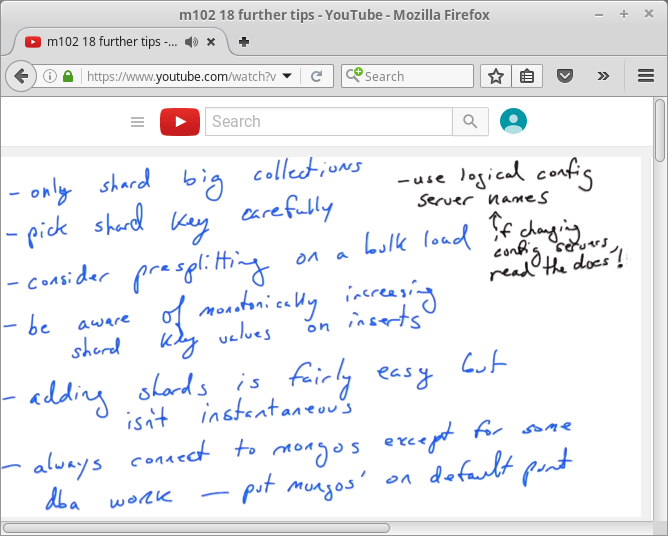 m102 18 further tips - YouTube - Mozilla Firefox
m102 18 further tips -...
https://www.youtube.com/watch?v
Search
Search
- only shard big collections
- pick shard key carefully
- consider presplitting on a bulk load
- be aware of monotonically increasing
shard key values on inserts
- adding shards is fairly easy but
isn't instantaneous
- always connect to mongos except for some
dba work — put mongos' on default port
- use logical config
server names
if changing
config servers,
read the docs!